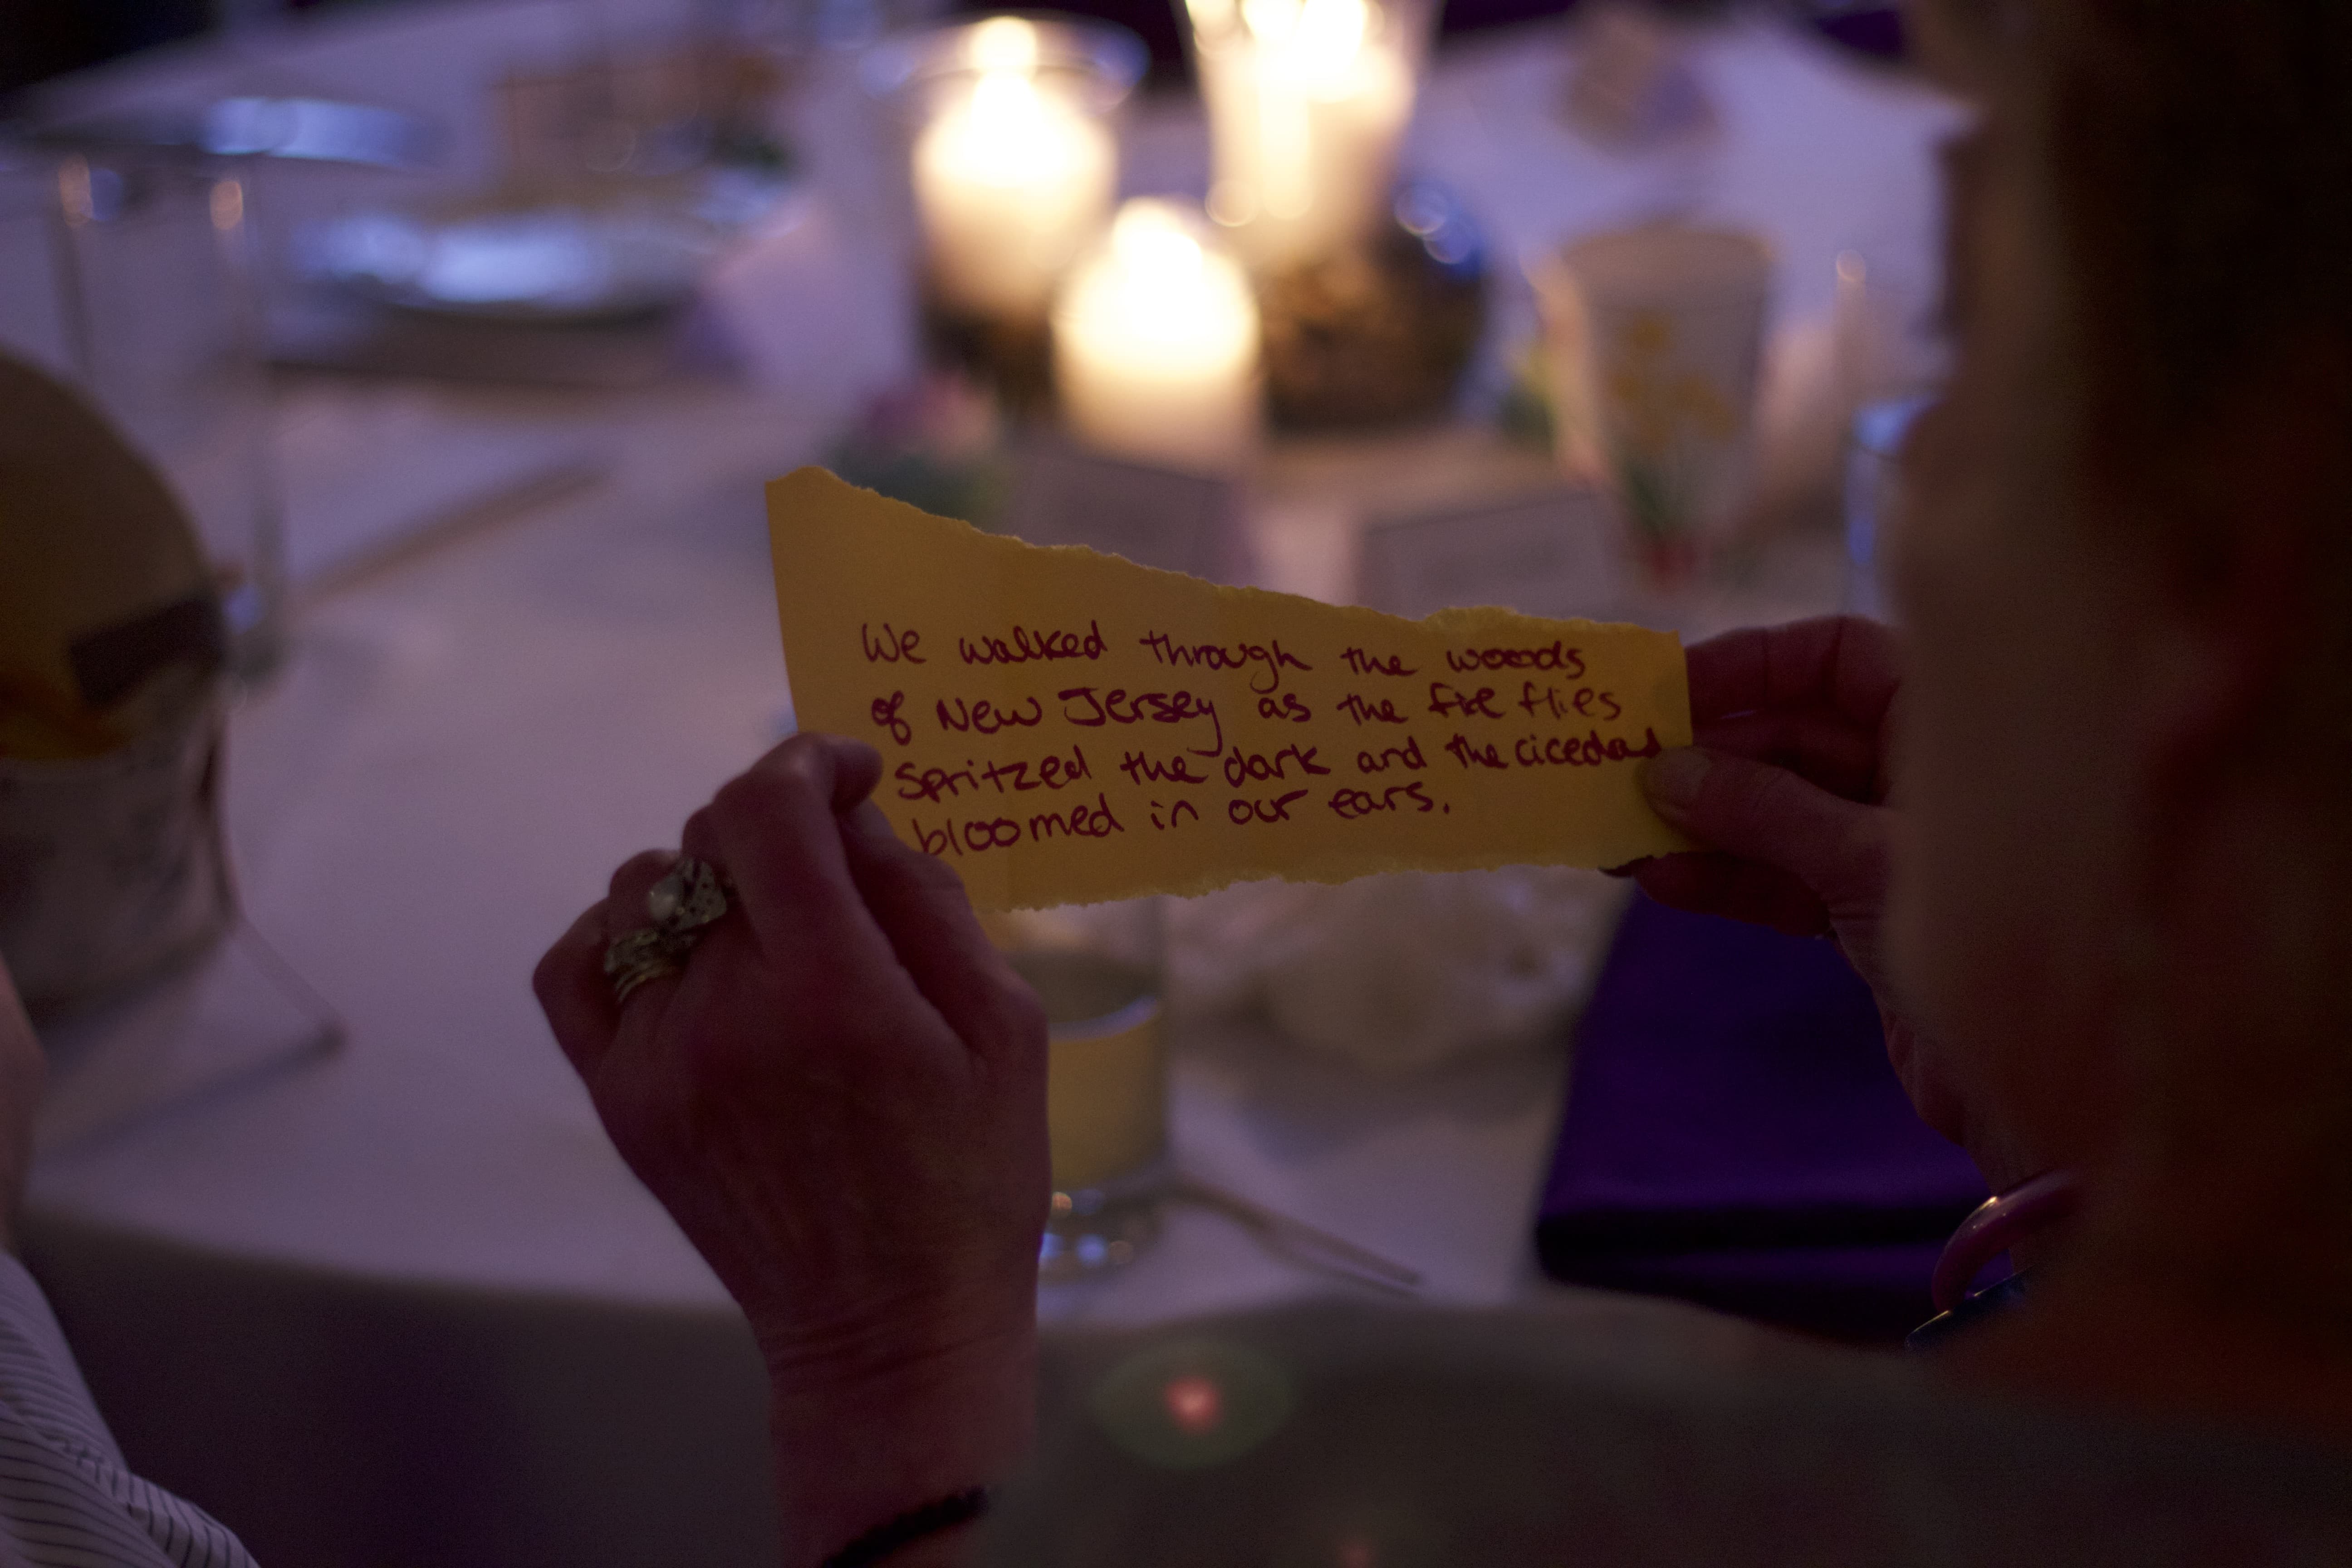 We walked through the woods
of New Jersey as the fire flies
spritzed the dark and the cicedas
bloomed in our ears.